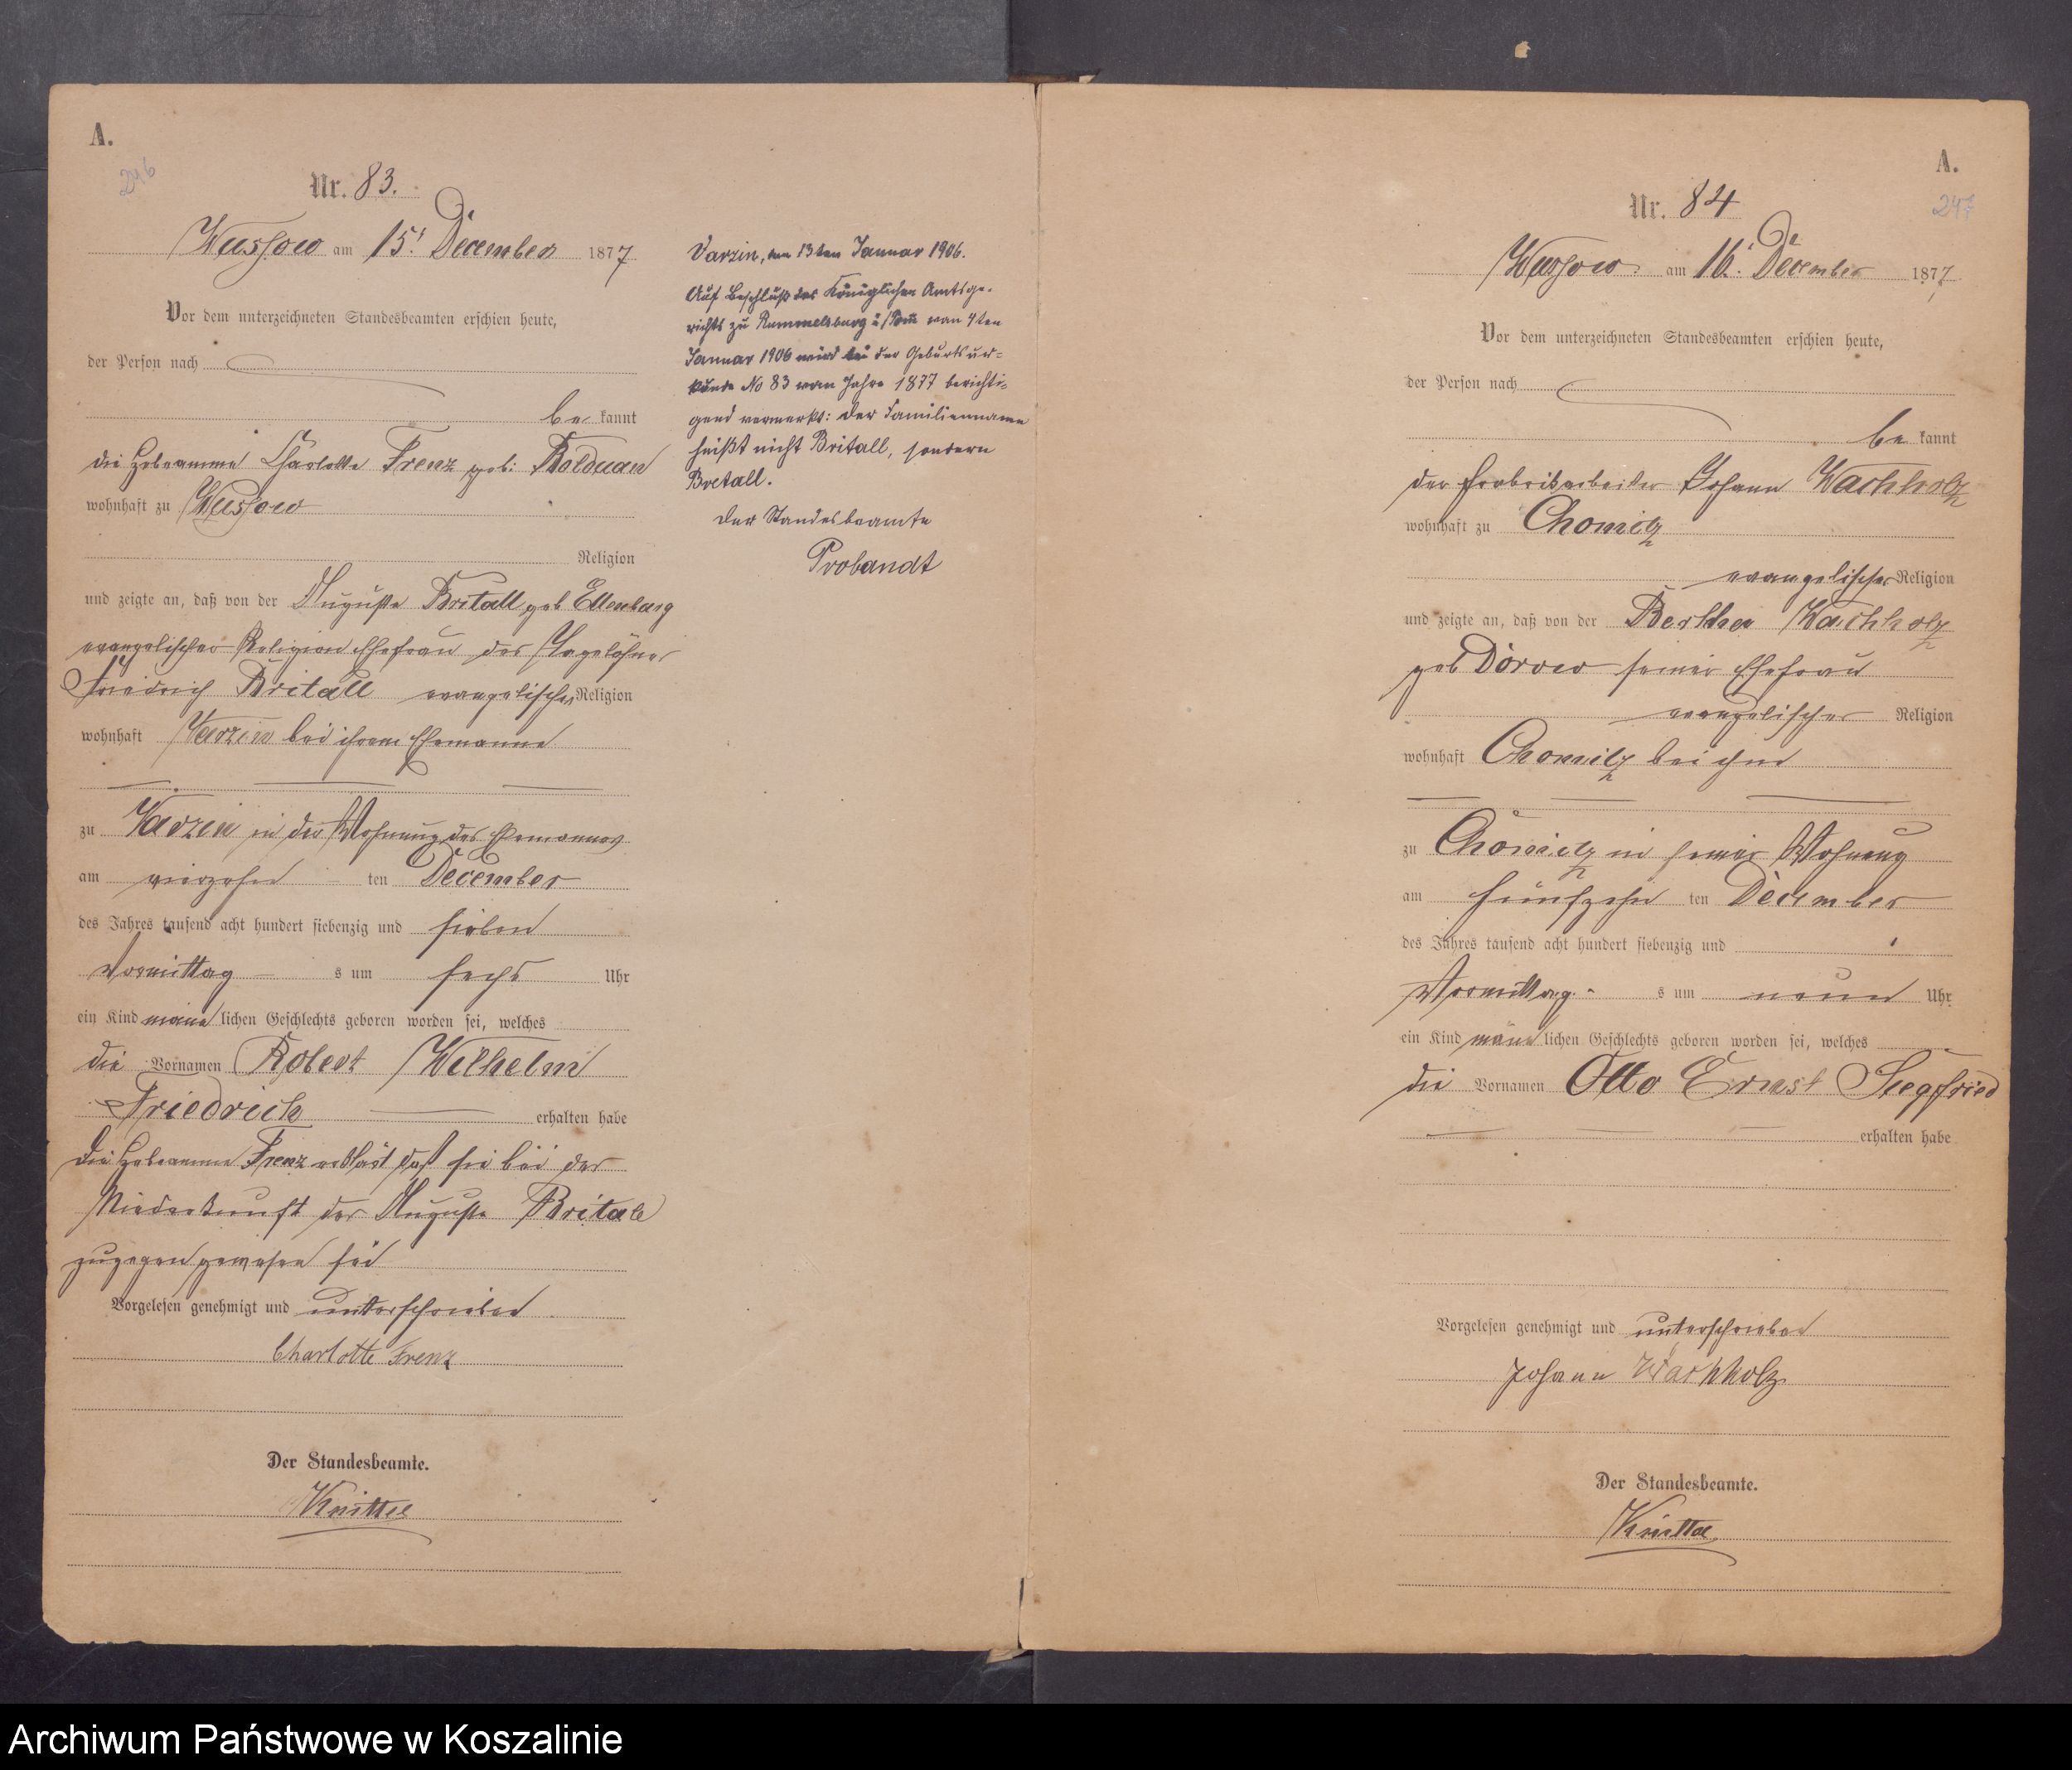 A.
246
Nr. 83.
Wussow am 15. December 1877
Vor dem unterzeichneten Standesbeamten erschien heute,
der Person nach
be kannt
die Hebeamme Charlotte Frenz geb: Bolduan
wohnhaft zu Wussow
Religion
und zeigte an, daß von der Auguste Britall geb Ellenbarg
evangelischer Religion Ehefrau des Tagelöhner
Friedrich Britall evangelischer Religion
wohnhaft Varzin bei ihrem Ehemanne
zu Varzin in der Wohnung des Ehemannes
am vierzehn ten December
des Jahres tausend acht hundert siebenzig und sieben
Vormittag s um sechs Uhr
ein Kind männ lichen Geschlechts geboren worden sei, welches
die Vornamen Robert Wilhelm
Friedrich erhalten habe
Die Hebeamme Frenz erklärt daß sie bei der
Niederkunft der Auguste Britall
zugegen gewesen sei
Vorgelesen genehmigt und unterschrieben
Charlotte Frenz
Der Standesbeamte.
Knittel
Varzin, den 13ten Januar 1906.
Auf Beschluß des Königlichen Amtsge-
richts zu Rummelsburg i/Pom vom 4ten
Januar 1906 wird bei der Geburtsur-
kunde No 83 vom Jahre 1877 berichti-
gend vermerkt: der Familienname
heißt nicht Britall, sondern
Bretall.
Der Standesbeamte
Probandt
A.
247
Nr. 84
Wussow am 16. December 1877
Vor dem unterzeichneten Standesbeamten erschien heute,
der Person nach
be kannt
der Fabrikarbeiter Johann Wachholz
wohnhaft zu Chomitz
evangelischer Religion
und zeigte an, daß von der Bertha Wachholz
geb Dorow seiner Ehefrau
evangelischer Religion
wohnhaft Chomitz bei ihm
zu Chomitz in seiner Wohnung
am fünfzehn ten December
des Jahres tausend acht hundert siebenzig und
Vormittag s um neun Uhr
ein Kind männ lichen Geschlechts geboren worden sei, welches
die Vornamen Otto Ernst Siegfried
erhalten habe
Vorgelesen genehmigt und unterschrieben
Johann Wachholz
Der Standesbeamte.
Knittel
Archiwum Państwowe w Koszalinie